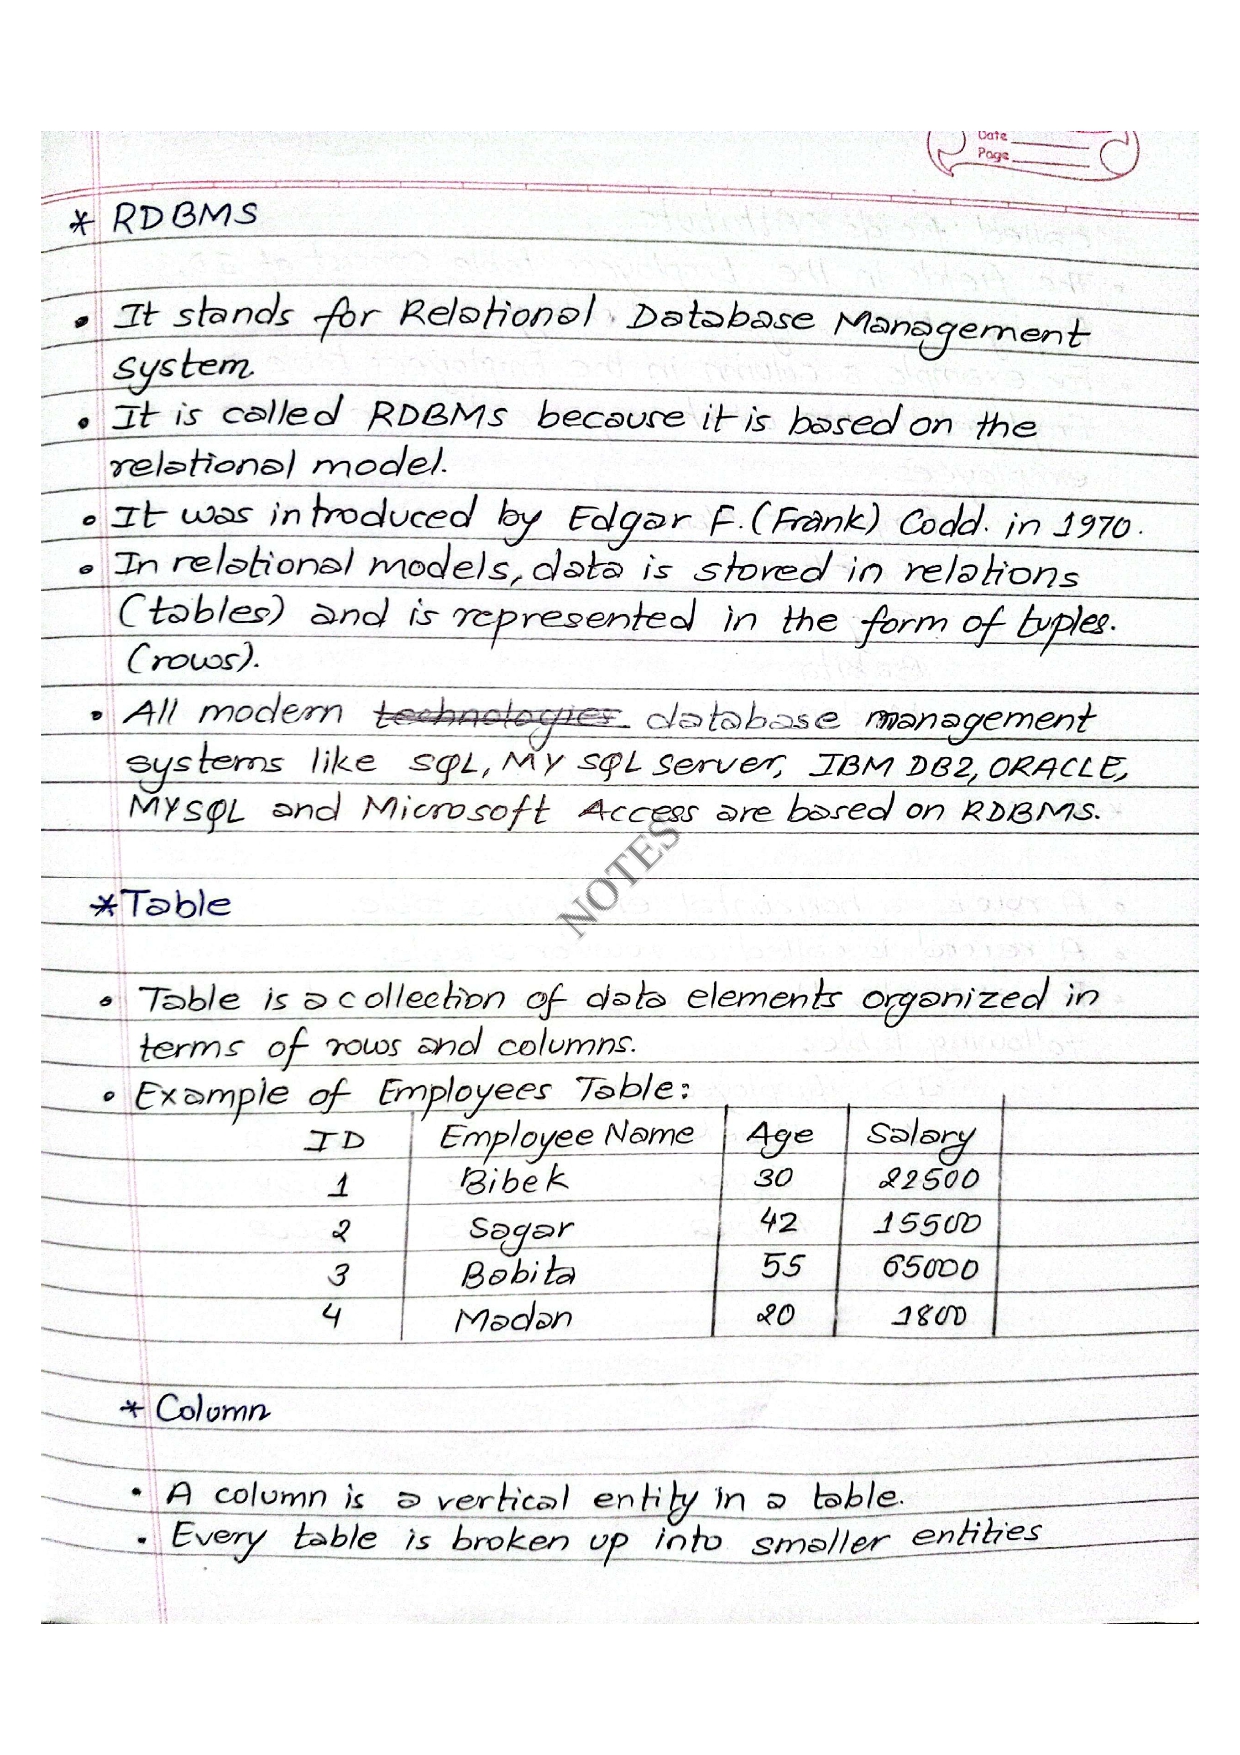 Date
Page
* RDBMS
• It stands for Relational Database Management
system.
• It is called RDBMS because it is based on the
relational model.
• It was introduced by Edgar F. (Frank) Codd. in 1970.
• In relational models, data is stored in relations
(tables) and is represented in the form of tuples.
(rows).
• All modern technologies database management
systems like SQL, MY SQL Server, IBM DB2, ORACLE,
MYSQL and Microsoft Access are based on RDBMS.
NOTES
* Table
• Table is a collection of data elements organized in
terms of rows and columns.
• Example of Employees Table:
ID Employee Name Age Salary
1 Bibek 30 22500
2 Sagar 42 15500
3 Babita 55 65000
4 Madan 20 1800
* Column
• A column is a vertical entity in a table.
• Every table is broken up into smaller entities